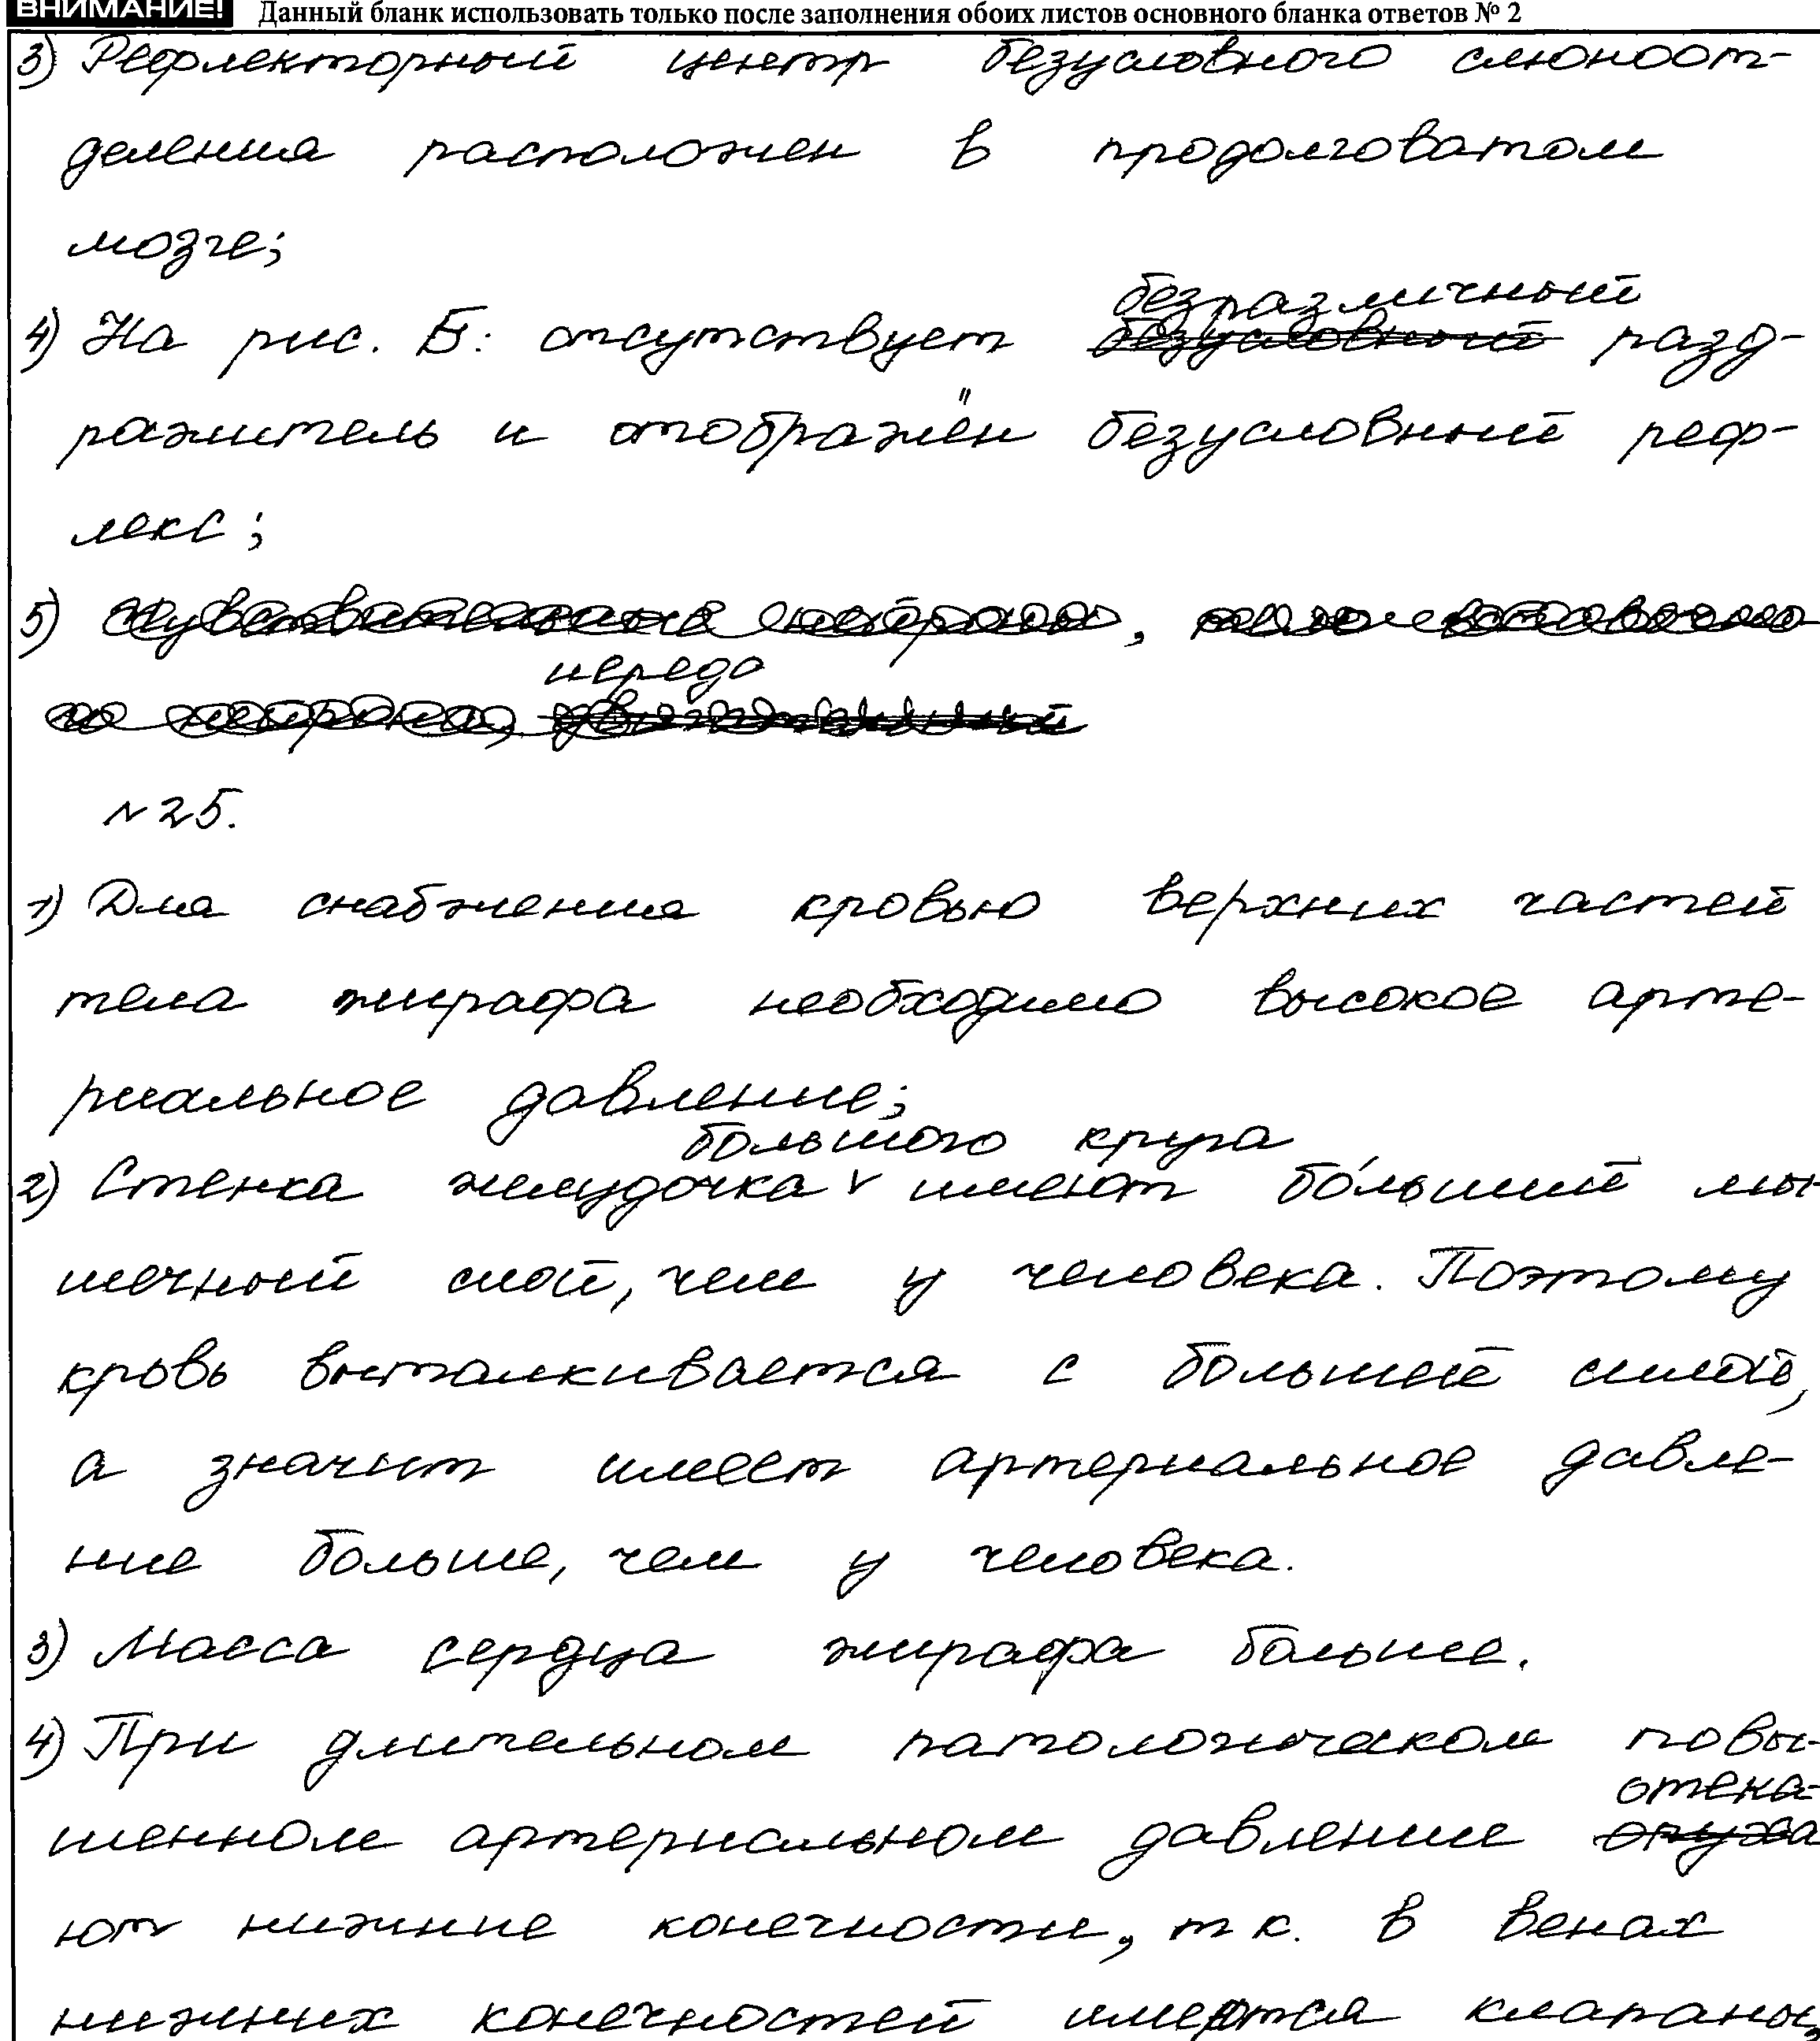 ВНИМАНИЕ! Данный бланк использовать только после заполнения обоих листов основного бланка ответов № 2
3) Рефлекторный центр безусловного слюноот-
деления расположен в продолговатом
мозге;
безразличный
4) На рис. Б: отсутствует безусловный разд-
ражитель и отображён безусловный реф-
лекс;
5) Чувствительные нейроны, тело вставочно
го нейрона, двигательный
передо
№25.
1) Для снабжения кровью верхних частей
тела жирафа необходимо высокое арте-
риальное давление;
большого круга
2) Стенка желудочка имеют бо́льший мы-
шечный слой, чем у человека. Поэтому
кровь выталкивается с большей силой,
а значит имеет артериальное давле-
ние больше, чем у человека.
3) Масса сердца жирафа больше.
4) При длительном патологическом повы-
отека-
шенном артериальном давление опуха
ют нижние конечности, т к. в венах
нижних конечностей имеются клапаны,